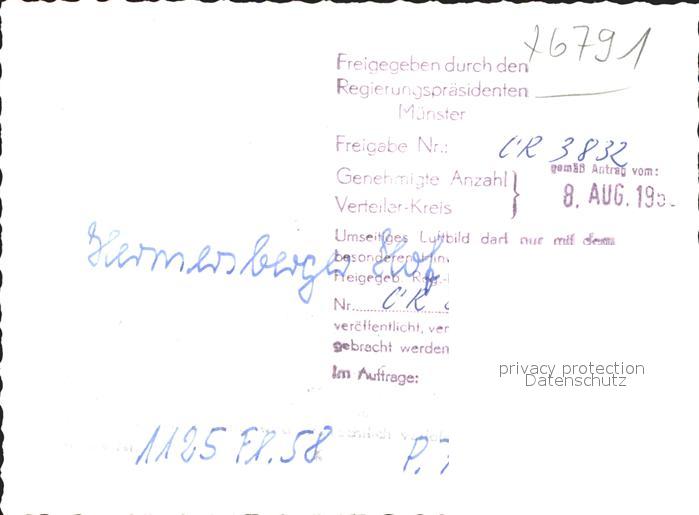 76791
Freigegeben durch den
Regierungspräsidenten
Münster
Freigabe Nr.: CR 3832
gemäß Antrag vom:
Genehmigte Anzahl }
8. AUG. 195
Verteiler-Kreis
Umseitiges Luftbild darf nur mit dem
besonderen Hin
Hermersberger Hof
Freigegeb. Reg.-
Nr. CR
veröffentlicht, ver
gebracht werden
Im Auftrage:
privacy protection
Datenschutz
1125 Fl. 58 P.